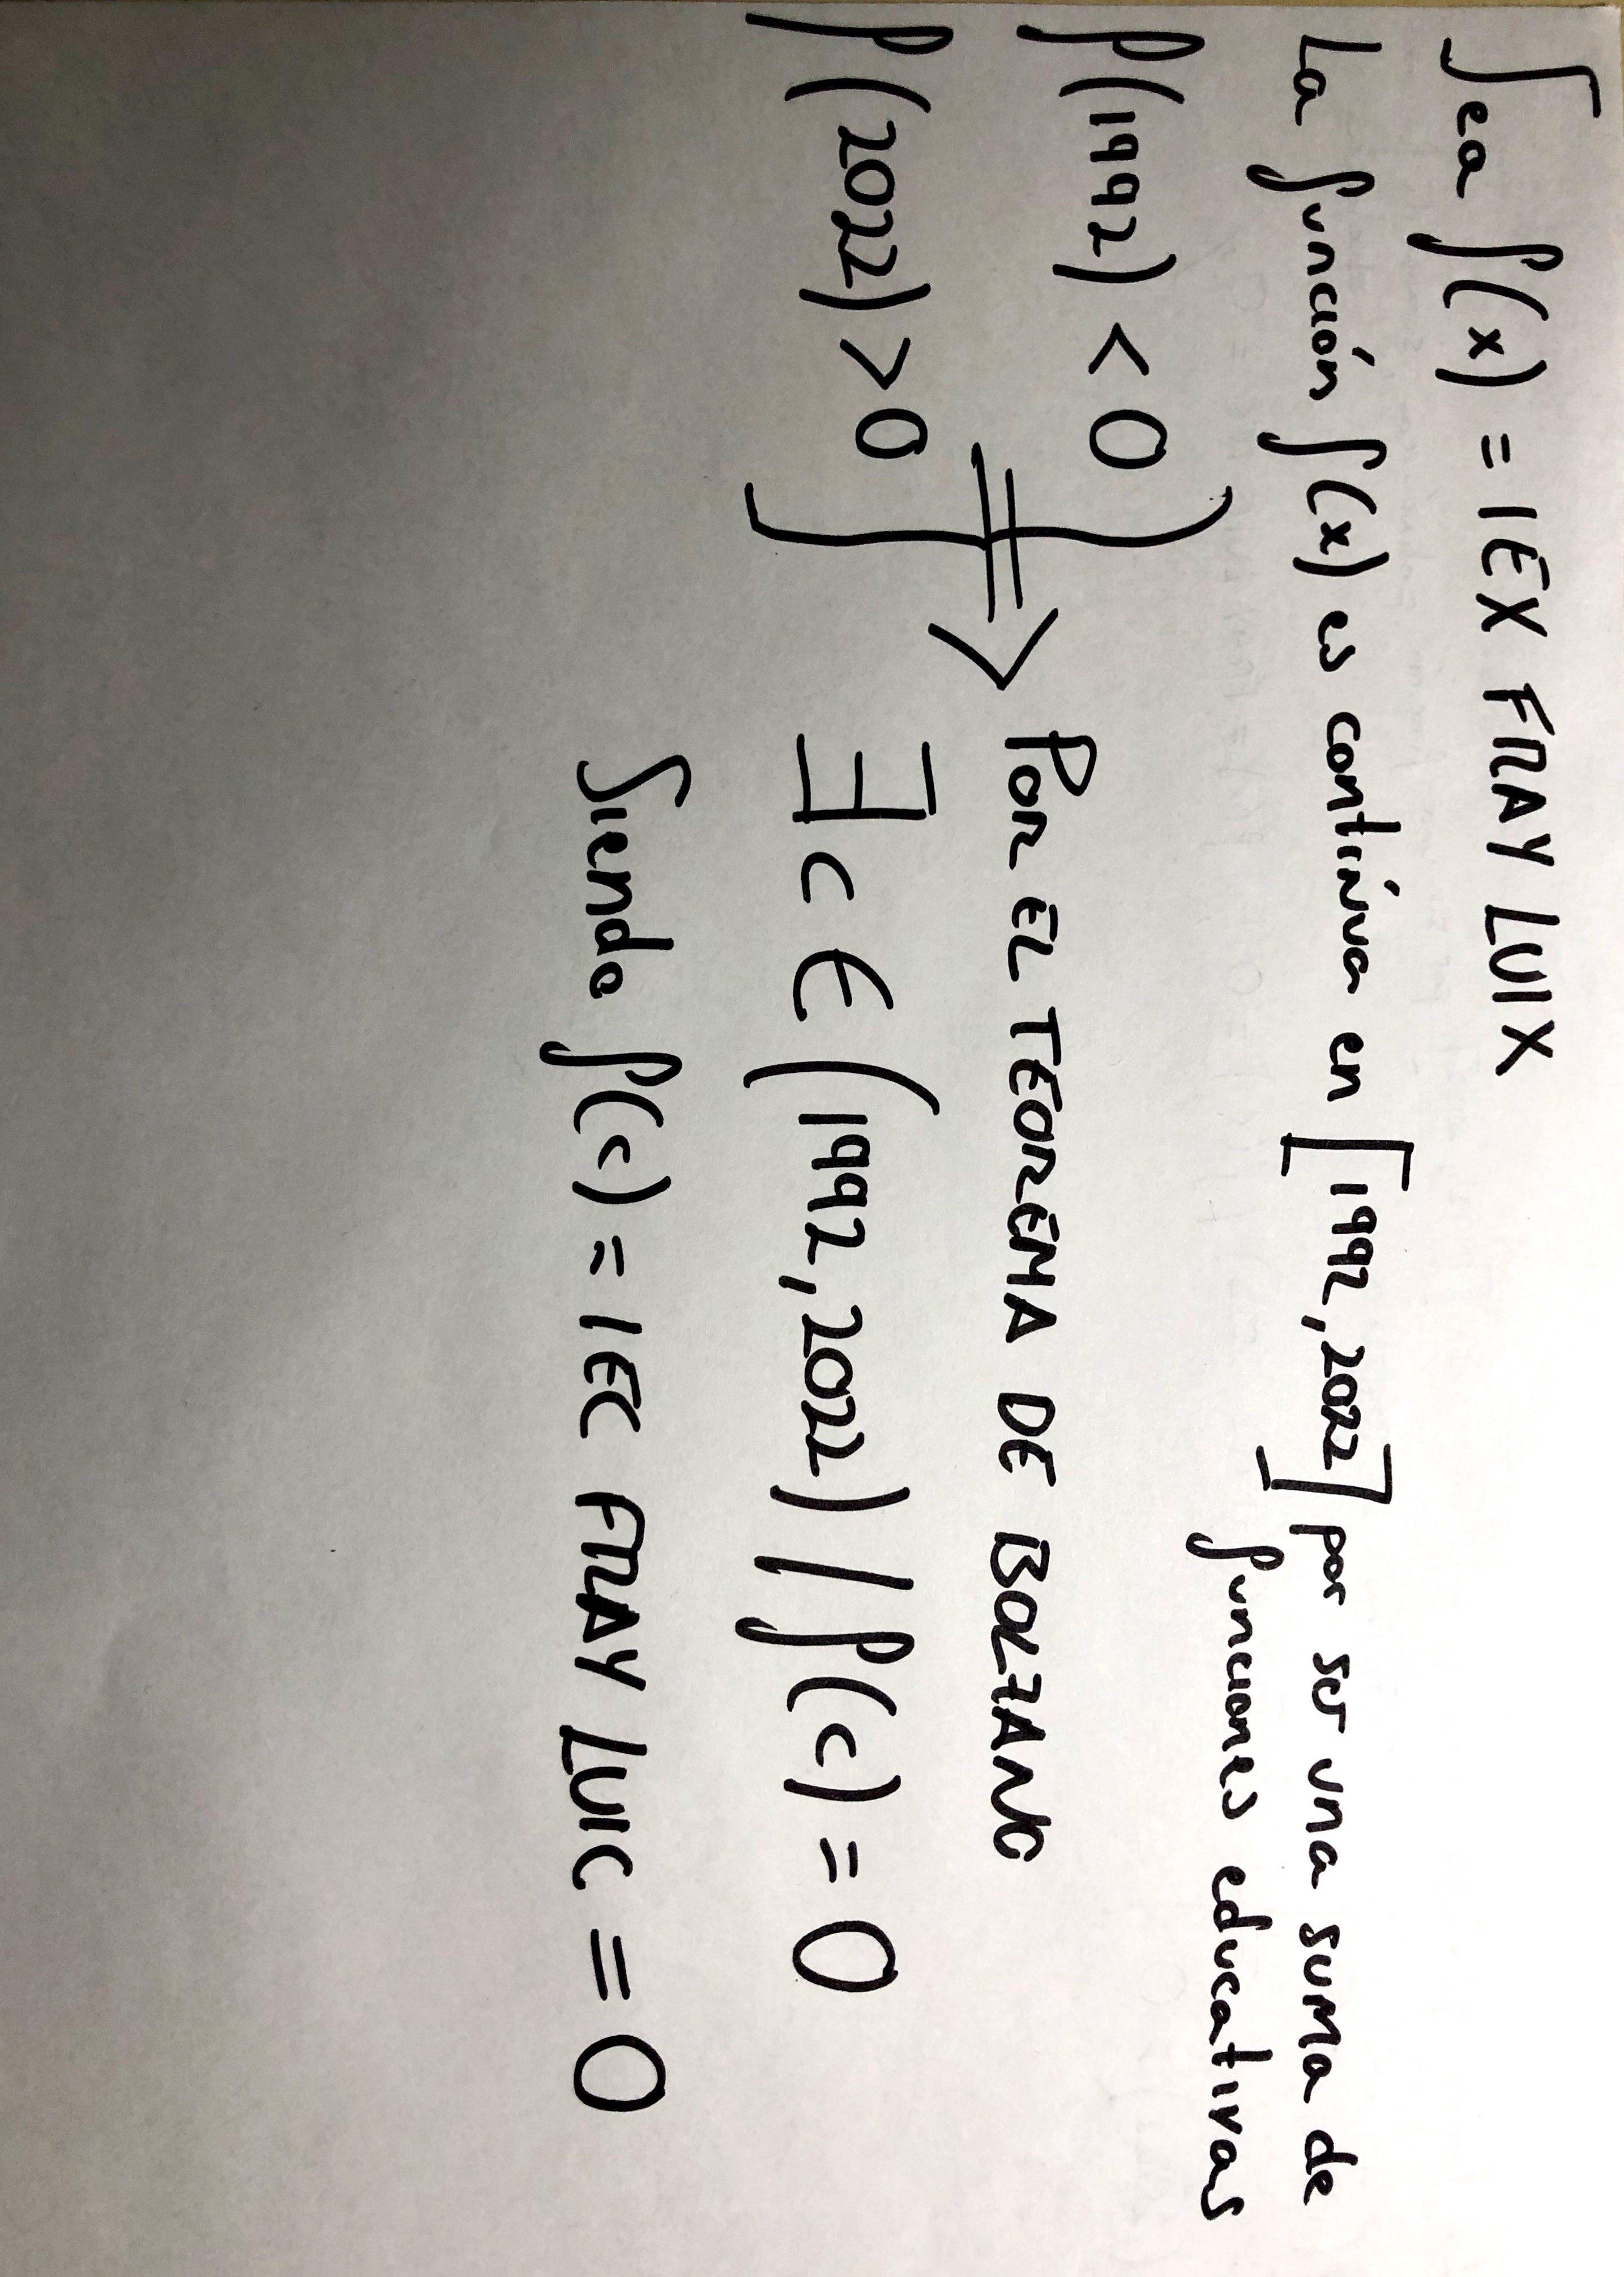 Sea f(x) = IEX FRAY LUIX
La función f(x) es contínua en [1992,2022] por ser una suma de
funciones educativas
f(1992) < 0
f(2022) > 0
} ⇒ POR EL TEOREMA DE BOLZANO
∃ c ∈ (1992,2022) | f(c) = 0
Siendo f(c) = IEC FRAY LUIC = 0